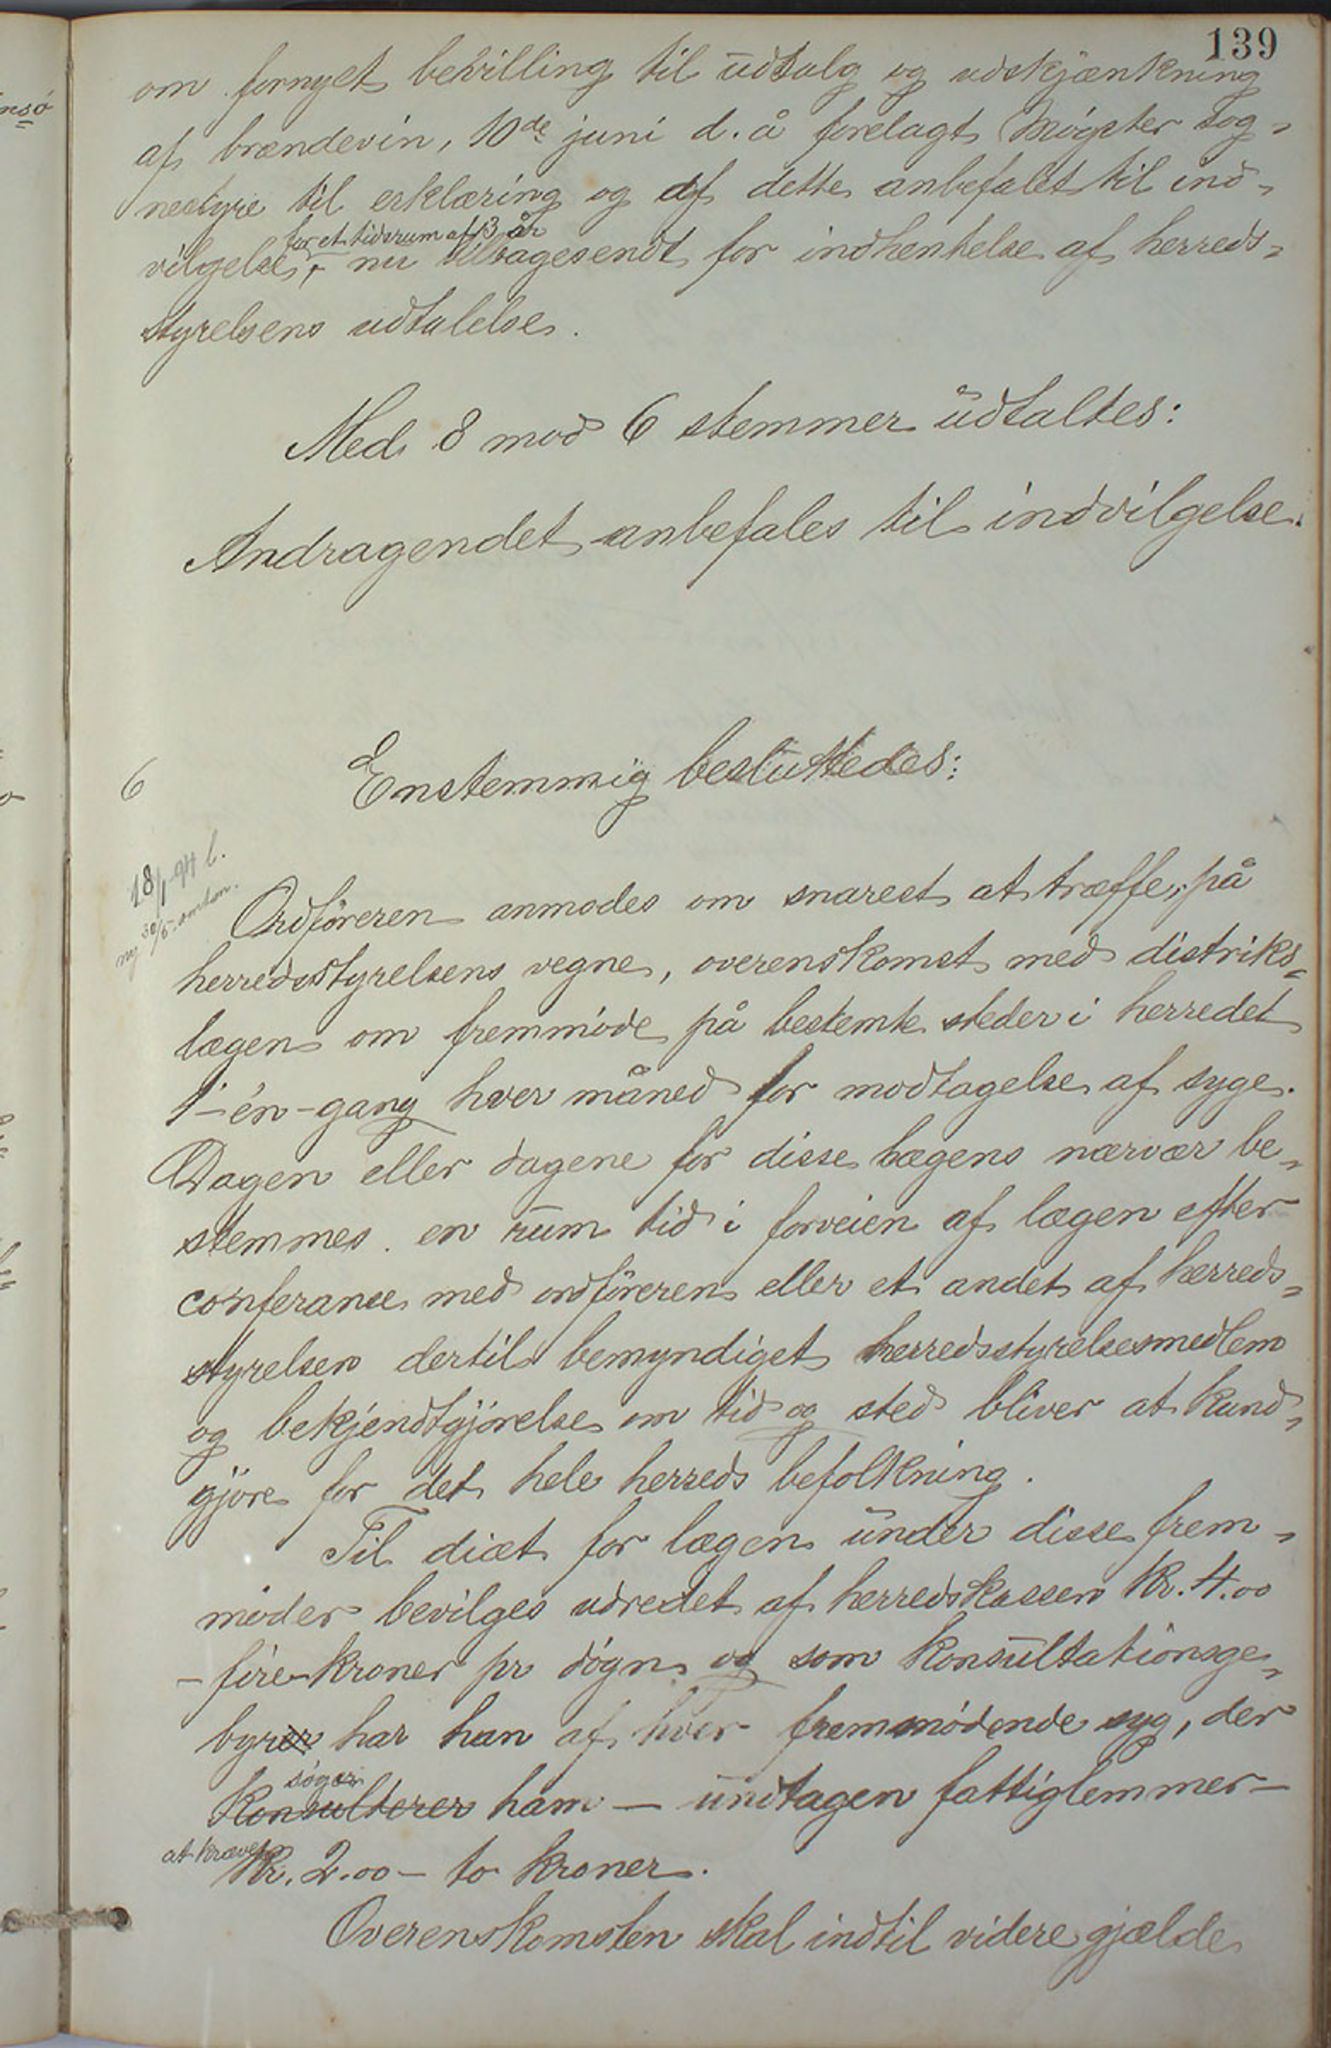 139
om fornyet bevilling til udsalg og udskjænkning
af brændevin, 10de juni d. å forelagt Møgster sog-
nestyre til erklæring og af dette anbefalet til ind-
for et tidsrum af 3 år
vilgelse, nu tilbagesendt for indhentelse af herreds-
styrelsens udtalelse.
Med 8 mod 6 stemmer udtaltes:
Andragendet anbefales til indvilgelse.
6
Enstemmig besluttedes:
18/1-94 b.
ny 30/5
Ordføreren anmodes om snarest at træffe, på
herredsstyrelsens vegne, overenskomst med distriks-
lægen om fremmøde på bestemte steder i herredet
1-én-gang hver måned for modtagelse af syge.
Dagen eller dagene for disse lægens nærvær be-
stemmes en rum tid i forveien af lægen efter
conferance med ordføreren eller et andet af herreds-
styrelsen dertil bemyndiget herredsstyrelsesmedlem
og bekjendtgjørelse om tid og sted bliver at kund-
gjøre for det hele herreds befolkning.
Til diæt for lægen under disse frem-
møder bevilges udredet af herredskassen kr. 4.00
-fire-kroner pr døgn og som konsultationsge-
byrer har han af hver fremmødende syg, der
søger
konsulterer ham - undtagen fattiglemmer -
at kræve
kr. 2.00 - to kroner.
Overenskomsten skal indtil videre gjælde